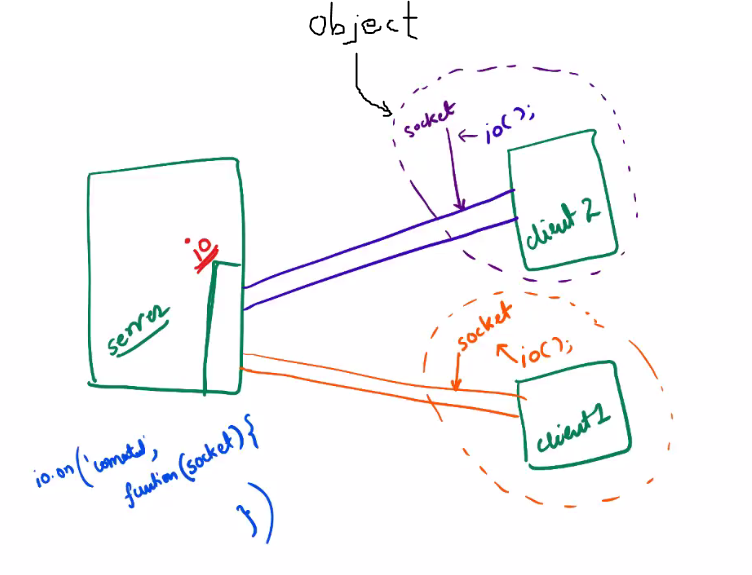 object
socket
io();
client 2
io
server
socket
io();
client 1
io.on('connected',
function(socket){
})